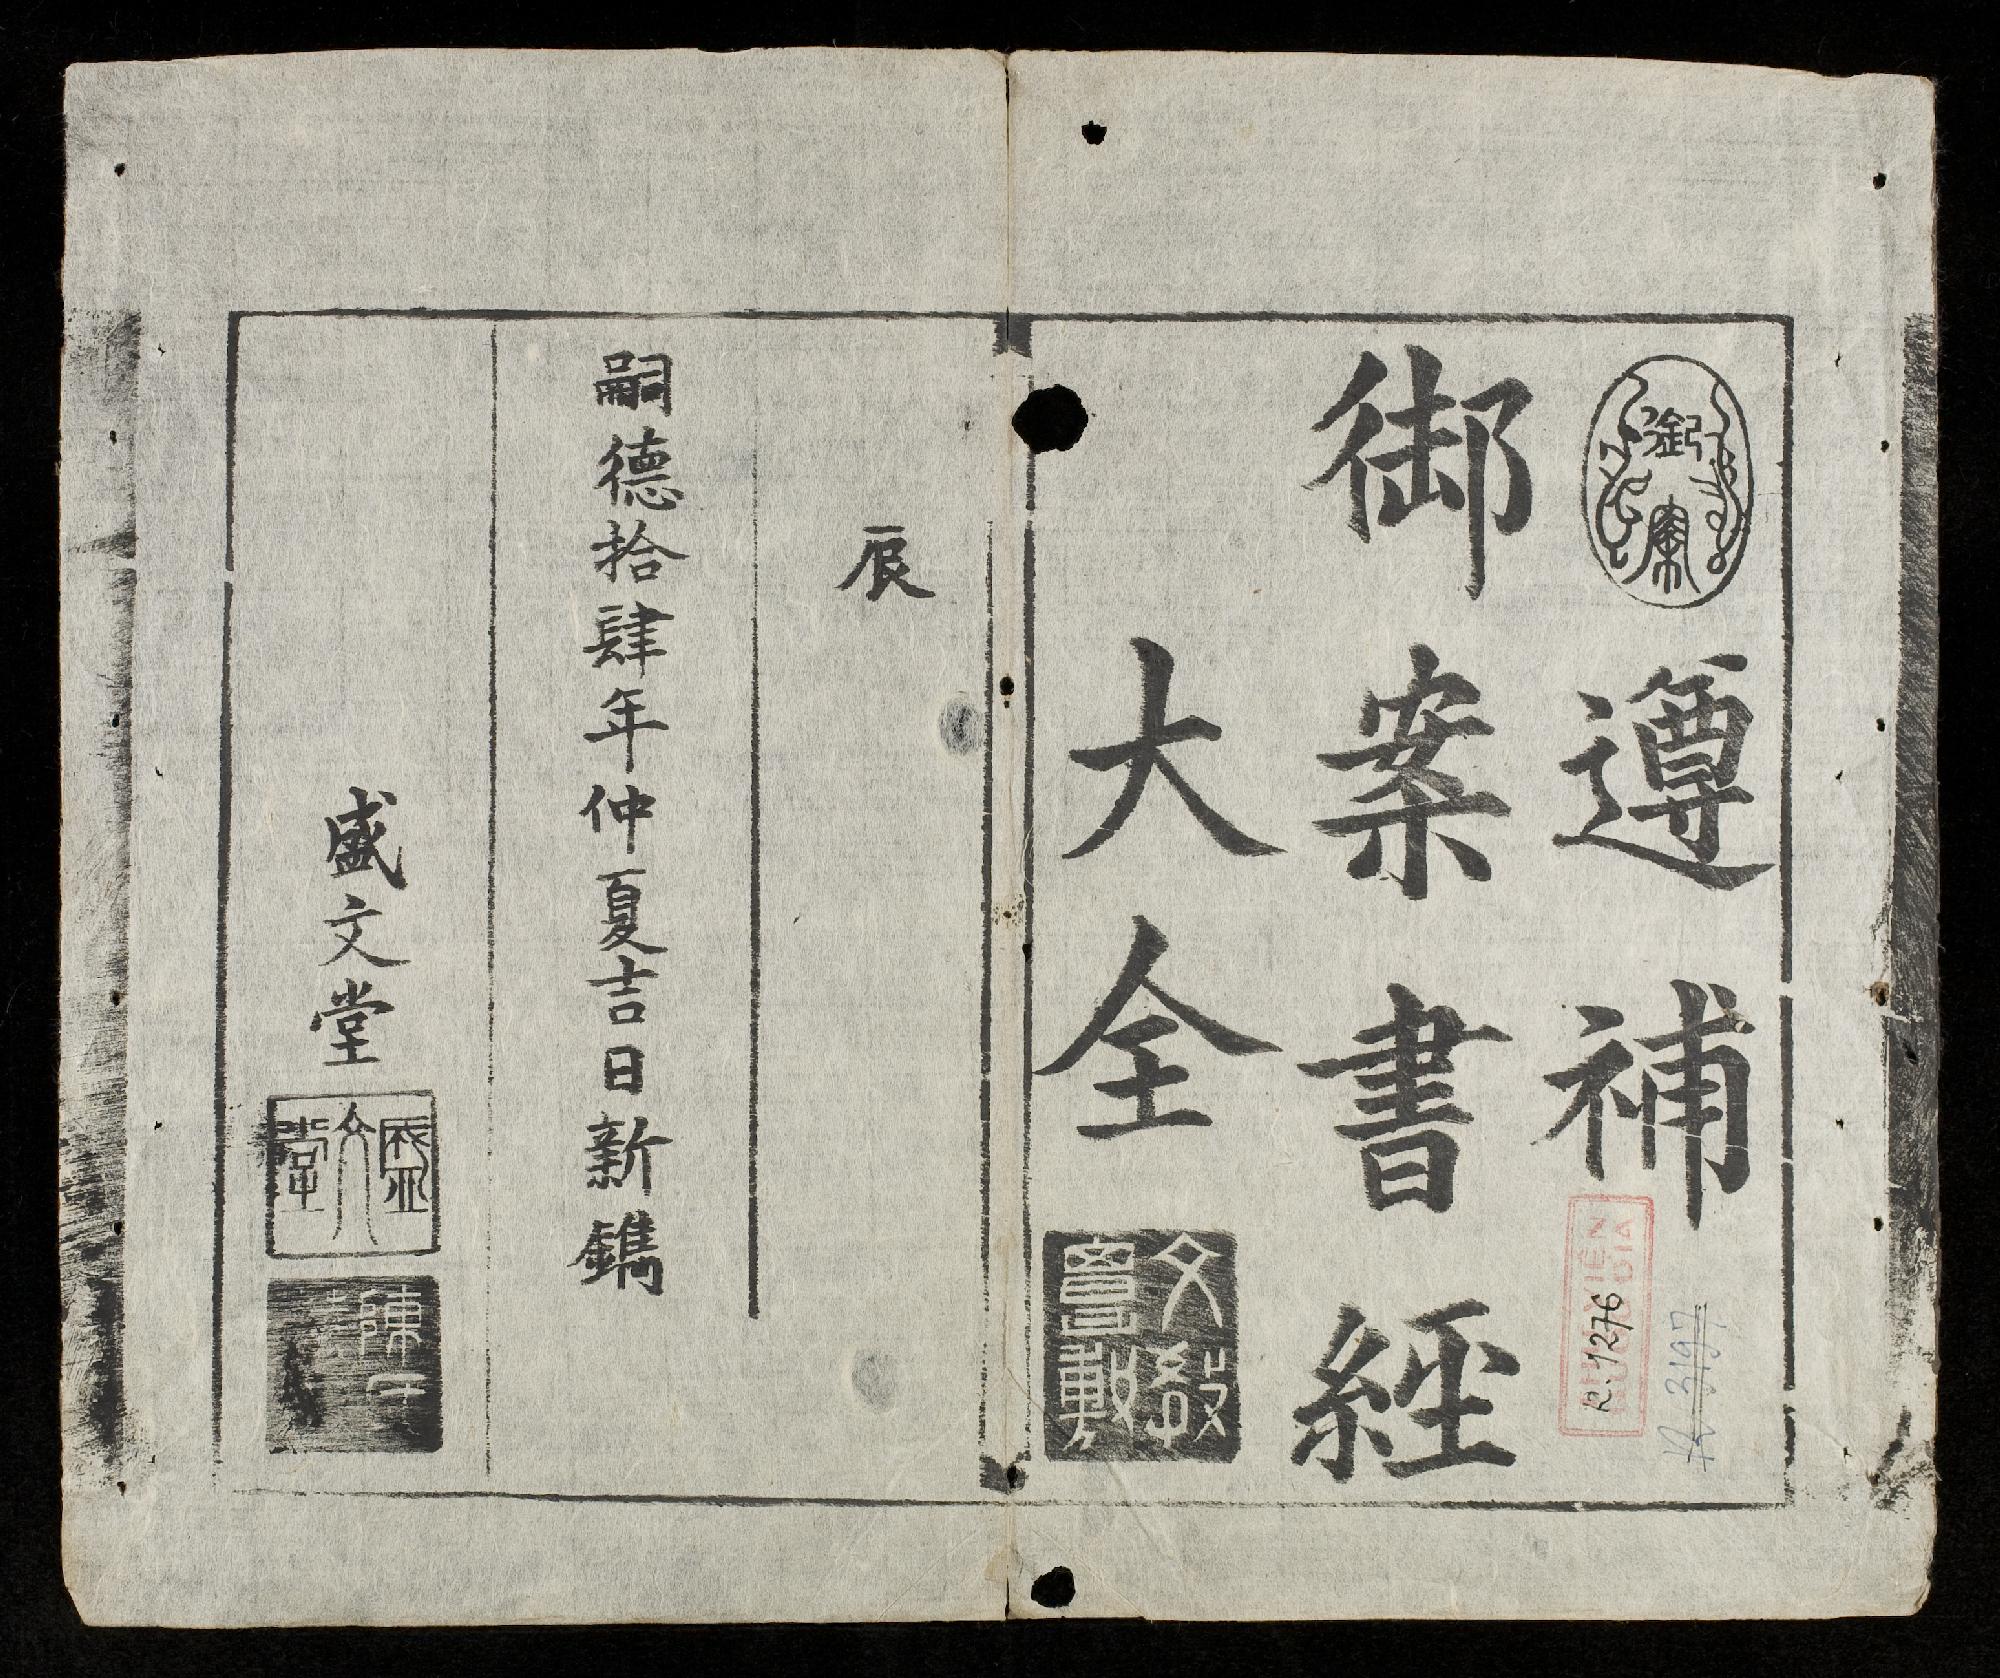 遵補
御案書經
大全
文教
辰
嗣德拾肆年仲夏吉日新鐫
盛文堂
盛文堂
陳
THƯ VIỆN
QUỐC GIA
R.1276
R 3197